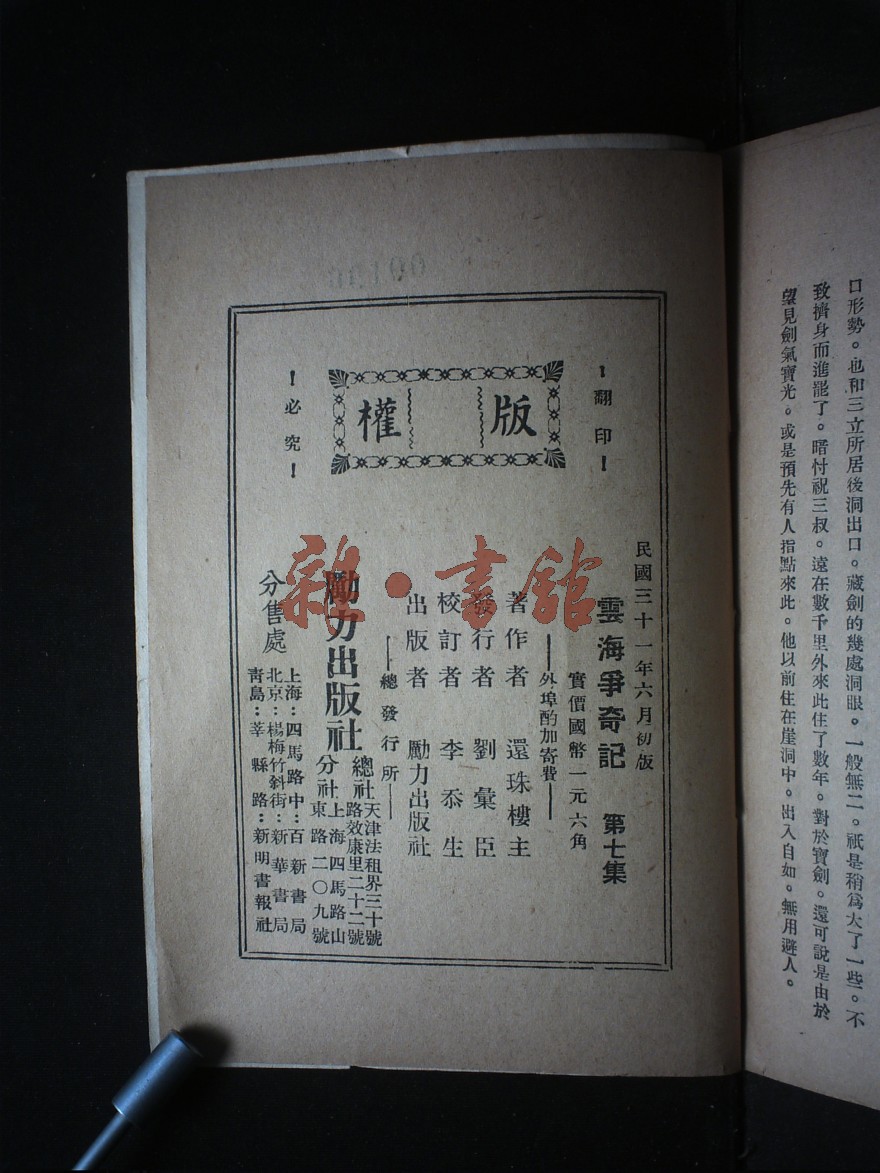 口形勢。也和三立所居後洞出口。藏劍的幾處洞眼。一般無二。祇是稍爲大了一些。不
致擠身而進罷了。暗忖祝三叔。遠在數千里外來此住了數年。對於寶劍。還可說是由於
望見劍氣寶光。或是預先有人指點來此。他以前住在崖洞中。出入自如。無用避人。
版權
!翻印!
!必究!
民國三十一年六月初版
雲海爭奇記 第七集
實價國幣一元六角
——外埠酌加寄費——
著作者 還珠樓主
發行者 劉彙臣
校訂者 李忝生
出版者 勵力出版社
——總發行所——
勵力出版社
總社天津法租界三十號
路效康里二十二號
分社上海四馬路山
東路二〇九號
分售處
上海:四馬路中:百新書局
北京:楊梅竹斜街:新華書局
靑島:莘縣路:新明書報社
雜·書館